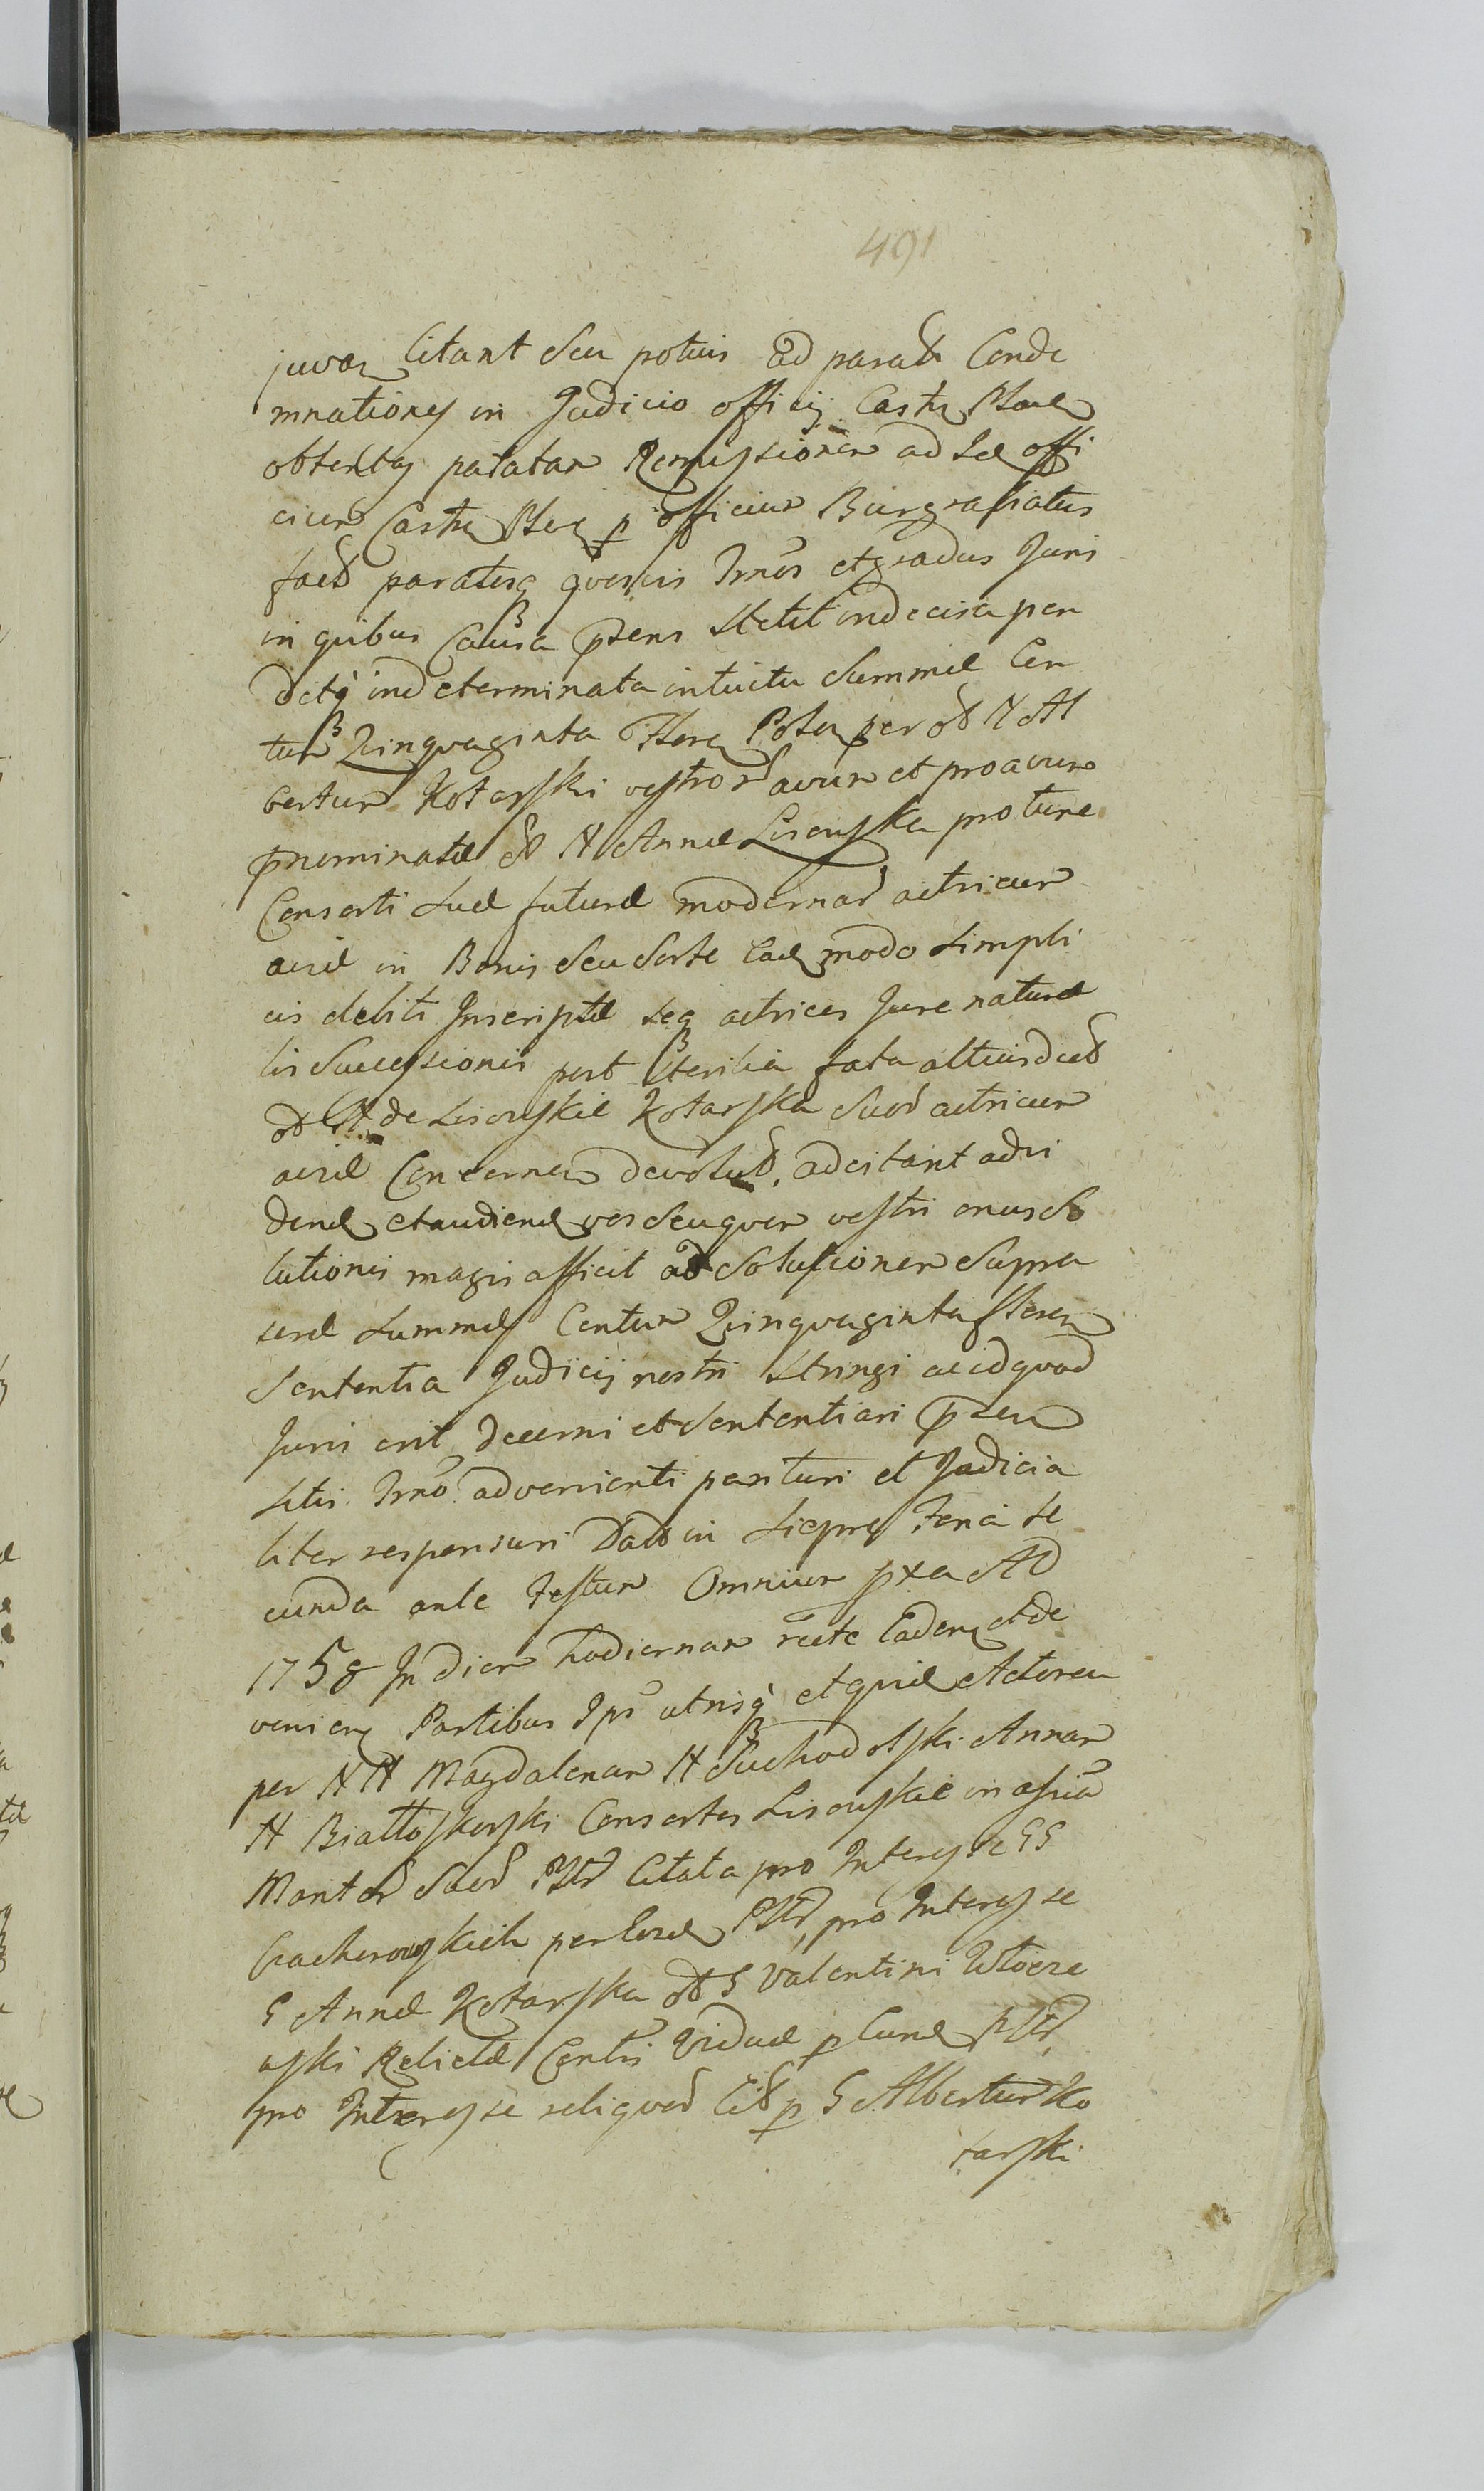 491
juvan Citant Seu potius ad parata Conde
mnationes in Judicio officij Castr
obtentas patatam Remissionem ad Se offi
cium Castr p officium Burgrabiatus
fact paratosq quosvis Trnos et gradus Juris
in quibus Causa psens Stetit indecisa pen
det indeterminata intuitu Summæ Cen
tum Quinquaginta Flore Polon per ol N Al
bertum Kotarski vestror avum et proavum
pnominatæ ol N Annæ Lisowska pro tunc
Consorti Suæ futuræ modernar actricum
aviæ in Bonis Seu Sorte modo Simpli
cis debiti Inscriptæ Seq actrices Jure natura
lis Successionis post Sterilia fata
ol N de Lisowskie Kotarska Suar actricum
aviæ Concernen devolut, adcitant advi
dend et audiend vos Seu quem vestri onus So
lutionis magis afficit ad Solutionem Supra
Summæ Centum Quinquaginta floren
Sententia Judicij nostri Stringi ac id quod
Juris erit decerni et Sententiari psen
Sitis Trno advenienti parituri et Judicia
liter responsuri Datt in Sierpes Feria Se
cunda ante Festum Omnium AD
1758 In diem hodiernam recte Caden et de
venien Partibus Ips utrisq et quidæ Actorea
per NN Magdalenam N Suchodolski Annam
N Białłoskorski Consortes Lisowskie in assia
Marit Suor Citata pro Interesse GG
perEosd pro Interesse
G Annæ Kotarska ol G Valentini
wski Relictæ Contis Viduæ p Eand
pro Interesse reliquor Cit p G Albertum Ko
tarski